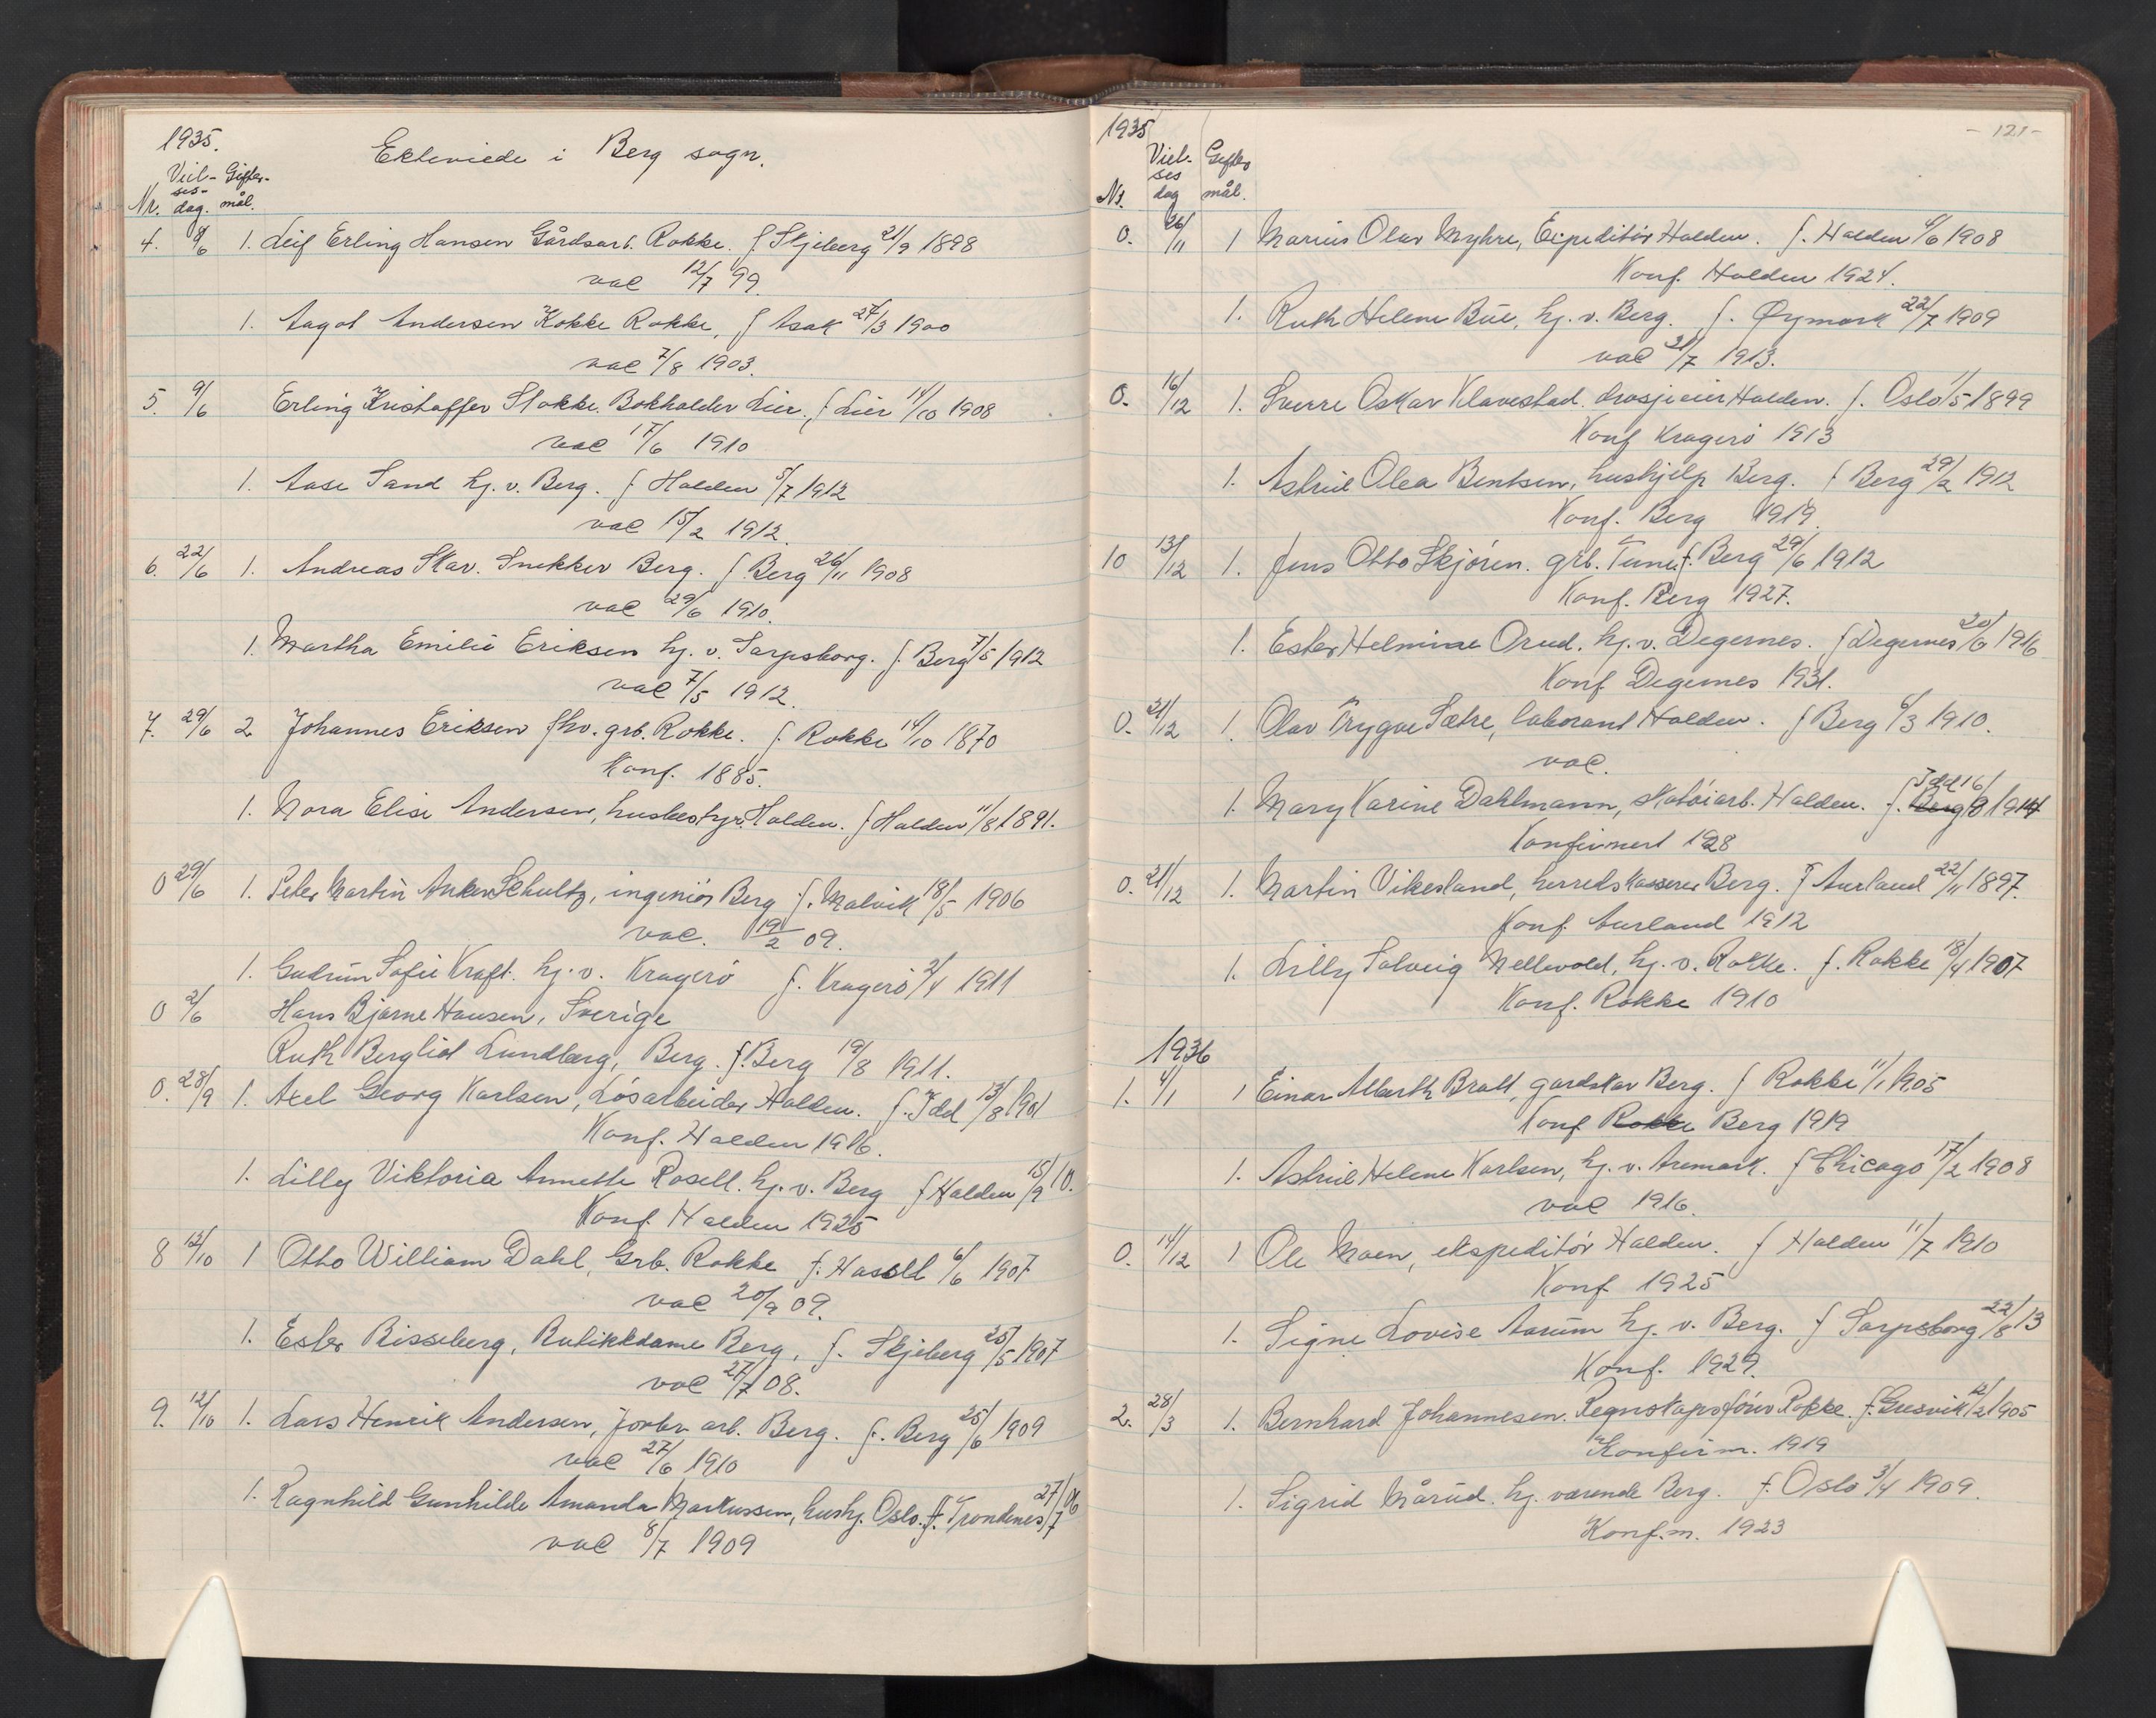 1935.
Ekteviede i Berg sogn.
Viel- Gifter-
ses-
Nr. dag. mål.
4. 8/6 1. Leif Erling Hansen Gårdsarb. Rokke. f Skjeberg 21/9 1898
vac 12/7 99.
1. Aagot Andersen Kokke Rokke, f Asak 24/3 1900
vac 7/8 1903.
5. 9/6 Erling Kristoffer Stokke. Bokholder Lier. f Lier 14/10 1908
vac 17/6 1910
1. Aase Sand hj. v. Berg. f Halden 5/7 1912
vac 15/2 1912.
6. 22/6 1. Andreas Skar. Snekker Berg. f Berg 26/11 1908
vac 29/6 1910.
1. Martha Emilie Eriksen hj. v. Sarpsborg. f. Berg 7/5 1912
vac 7/5 1912.
7. 29/6 2 Johannes Eriksen fhv. grb. Rokke. f. Rokke 14/10 1870
Konf. 1885.
1. Nora Elise Andersen, husbestyr. Halden. f Halden 11/8 1891.
0 29/6 1. Peter Martin Anker Schultz, ingeniör Berg f. Malvik 18/5 1906
vac. 19/2 09.
1. Gudrun Sofie Kraft. hj. v. Kragerö f. Kragerö 2/4 1911
0 2/6 Hans Bjarne Hansen, Sverige
Ruth Bergliot Lundberg, Berg. f. Berg 19/8 1911.
0. 28/9 1. Axel Georg Karlsen, Lösarbeider Halden. f. Idd 13/8 1901
Konf. Halden 1916.
1. Lilly Viktoria Annette Rosell. hj. v. Berg f Halden 15/9 10.
Konf. Halden 1925
8 12/10 1 Otto William Dahl, Grb. Rokke f. Hasell 6/6 1907
vac 20/9 09.
1. Ester Risseberg, Butikkdame Berg, f. Skjeberg 25/5 1907
vac 27/7 08.
9. 12/10 1. Lars Henrik Andersen, jordbr. arb. Berg. f. Berg 25/6 1909
vac 27/6 1910
1. Ragnhild Gunhilde Amanda Markussen, hushj. Oslo. f. Trondenes 27/7 06
vac 8/7 1909
1935
- 121 -
Viel- Gifter
ses
Nr. dag mål.
0. 26/11 1 Marius Olav Myhre, Expeditör Halden. f. Halden 6/6 1908
Konf. Halden 1924.
1. Ruth Helene Büe, hj. v. Berg. f. Øymark 22/7 1909
vac 31/7 1913.
0. 16/12 1. Sverre Oskar Klavestad. drosjeeier Halden. f. Oslo 1/5 1899
Konf Kragerö 1913
1. Astrid Olea Bentsen, hushjelp Berg. f Berg 29/2 1912
Konf. Berg 1919.
10 13/12 1. Jens Otto Skjören. grb. Tune f. Berg 29/6 1912
Konf. Berg 1927.
1. Ester Helmine Orud. hj. v. Degernes. f Degernes 20/6 1916
Konf Degernes 1931.
0. 21/12 1. Olav Trygve Sætre, laborant Halden. f Berg 6/3 1910.
vac.
Idd 16/
1. Mary Karine Dahlmann, skotöiarb. Halden. f. Berg 8 1914
Konfirmert 1928
0. 21/12 1. Martin Vikesland, herredskasserer Berg. f Aurland 22/11 1897.
Konf. Aurland 1912
1. Lilly Solveig Mellevold, hj. v. Rokke. f. Rokke 18/4 1907
Konf. Rokke 1910
1936
1. 4/1 1 Einar Alberth Bratt, gardskar Berg. f Rokke 11/1 1905
Konf Rokke Berg 1919
1. Astrid Helene Karlsen, hj. v. Aremark. f Chicago 17/2 1908
vac 1916.
0. 14/12 1 Ole Moen, ekspeditör Halden. f Halden 11/7 1910
Konf 1925
1. Signe Lovise Aarum hj. v. Berg. f Sarpsborg 22/8 13
Konf. 1929.
2. 28/3 1. Bernhard Johannesen. Regnskapsförer Rokke. f. Gresvik 12/2 1905
Konfirm. 1919
1. Sigrid Mårud. hj. værende Berg. f. Oslo 3/4 1909.
Konf.m. 1923